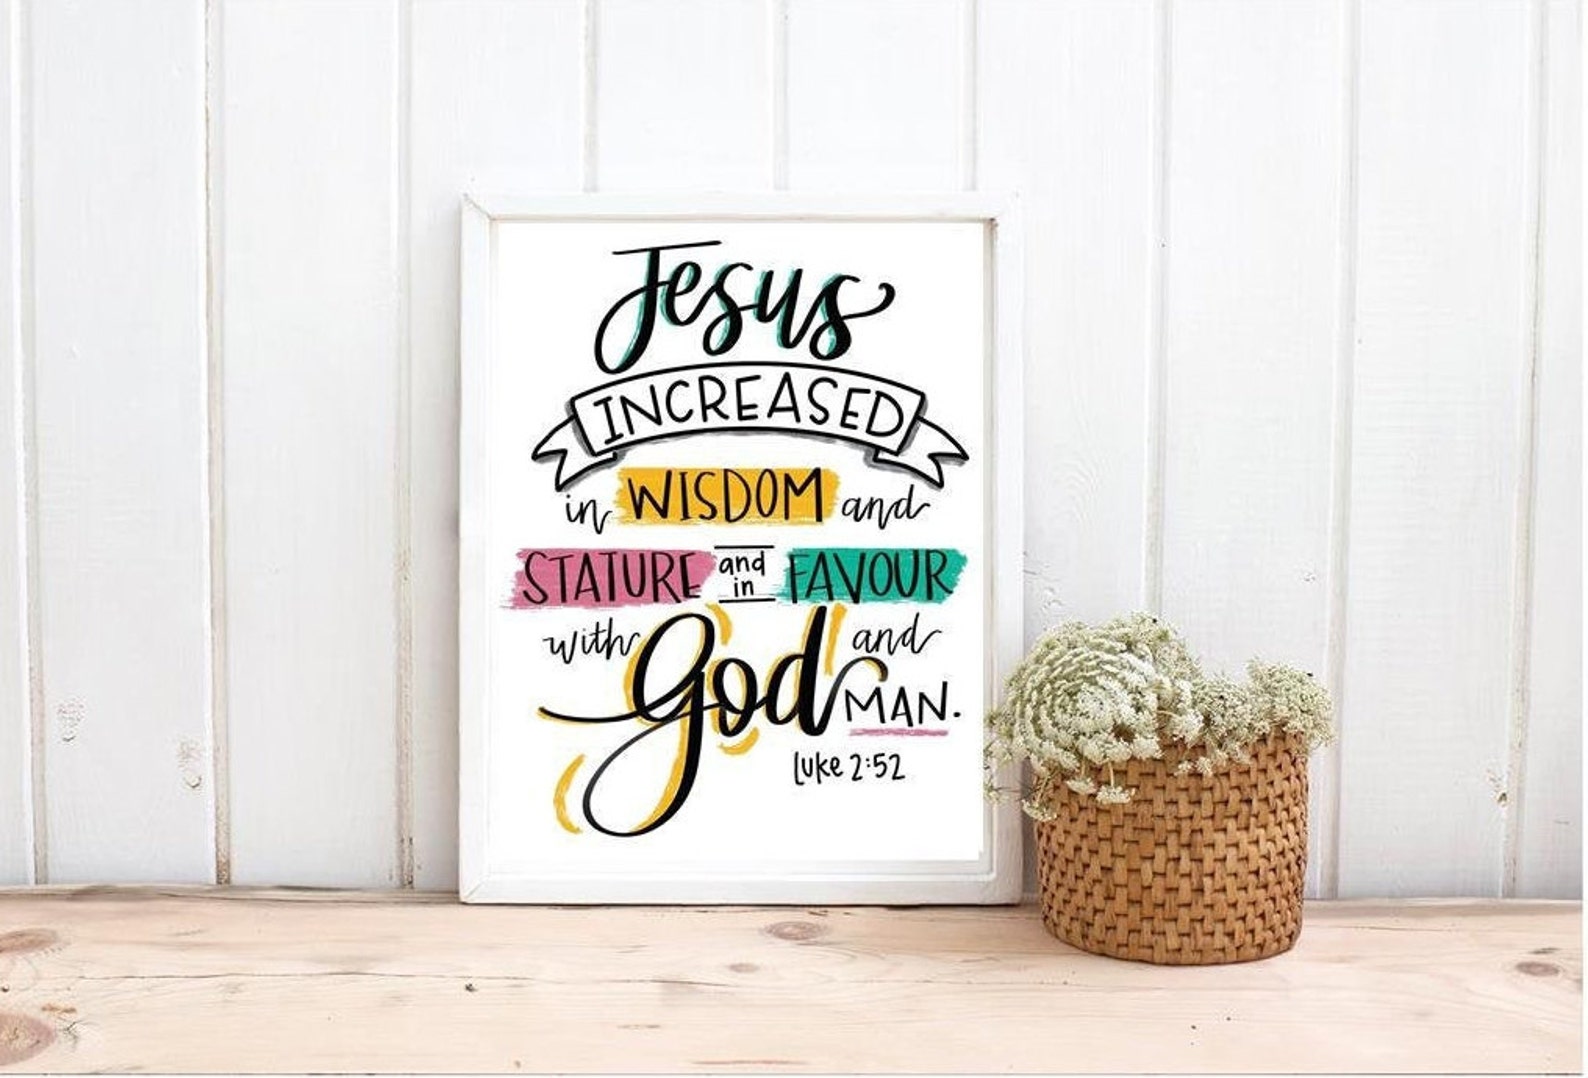 Jesus
INCREASED
in WISDOM and
STATURE and in FAVOUR
with God and
MAN.
Luke 2:52